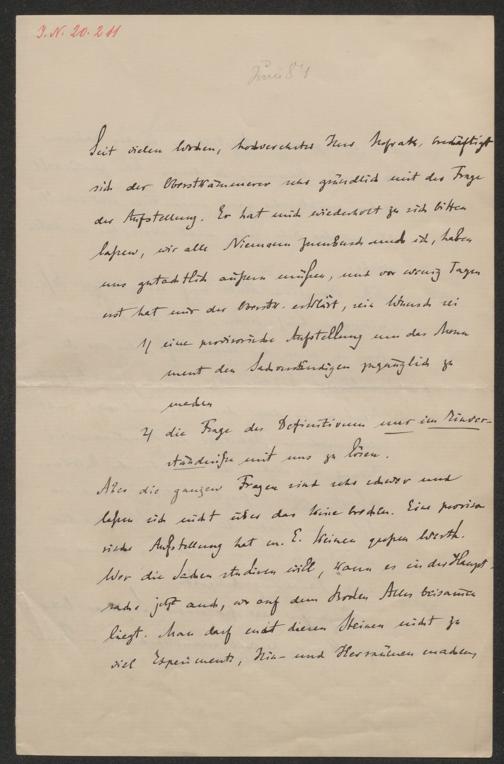 I.N. 20.211
Juni 84
Seit vielen Wochen, hochverehrter Herr Hofrath, beschäftigt
sich der Oberstkämmerer sehr gründlich mit der Frage
der Aufstellung. Er hat mich wiederholt zu sich bitten
laßen, wir alle Niemann Zumbusch und ich, haben
uns gutachtlich äußern müßen, und vor wenig Tagen
erst hat mir der Oberstk. erklärt, sein Wunsch sei
1) eine provisorische Aufstellung um das Monu
ment den Sachverständigen zugänglich zu
machen
2) die Frage des Definitivum nur im Einver-
ständniße mit uns zu lösen.
Aber die ganzen Fragen sind sehr schwer und
laßen sich nicht über das Knie brechen. Eine proviso
rische Aufstellung hat m. E. keinen großen Werth.
Wer die Sachen studiren will, kann es in der Haupt-
sache jetzt auch, wo auf dem Boden Alles beisammen
liegt. Man darf mit diesen Steinen nicht zu
viel Experimente, Hin- und Herräumen machen,